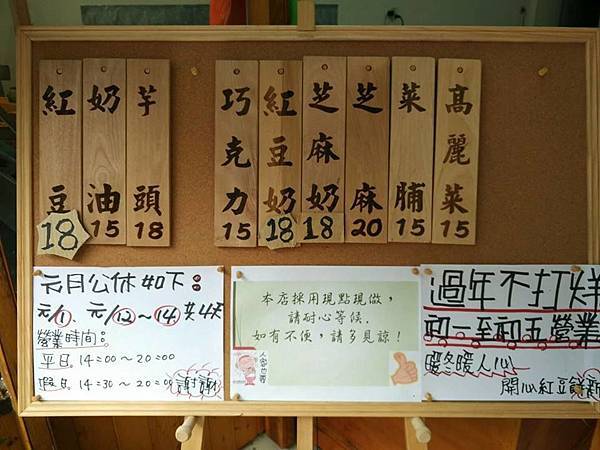 紅豆 18
奶油 15
芋頭 18
巧克力 15
紅豆奶 18
芝麻奶 18
芝麻 20
菜脯 15
高麗菜 15
元月公休如下:
元/1、元/12～14 共4天
營業時間:
平日. 14:00～20:00
假日. 14:30～20:00 謝謝
本店採用現點現做,
請耐心等候.
如有不便,請多見諒!
過年不打烊
初一至初五營業
暖冬暖人心
開心紅豆餅